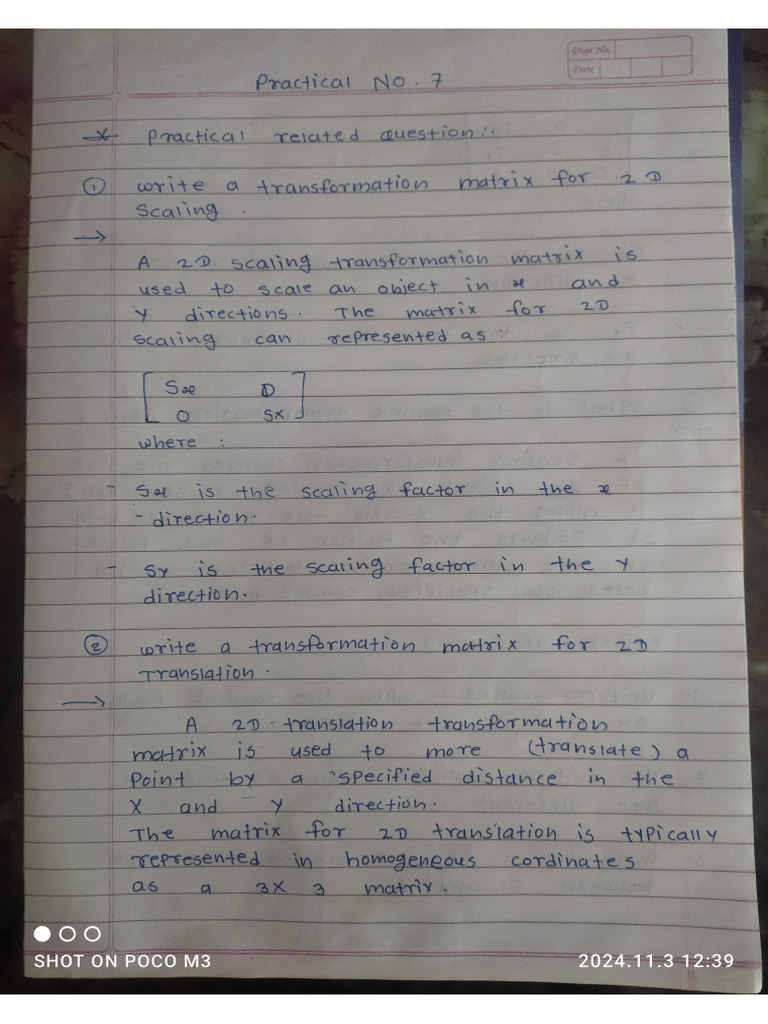 Page No.
Date
Practical No. 7
* Practical related question :.
① write a transformation matrix for 2D
Scaling.
→
A 2D scaling transformation matrix is
used to scale an object in x and
y directions. The matrix for 2D
scaling can represented as :
[ Sx 0 ]
[ 0 Sx ]
where :
- Sx is the scaling factor in the x
- direction.
- Sy is the scaling factor in the Y
direction.
② write a transformation matrix for 2D
Translation.
→
A 2D-translation transformation
matrix is used to more (translate) a
Point by a specified distance in the
X and - Y direction.
The matrix for 2D translation is typically
represented in homogeneous cordinates
as a 3x3 matrix.
SHOT ON POCO M3
2024.11.3 12:39